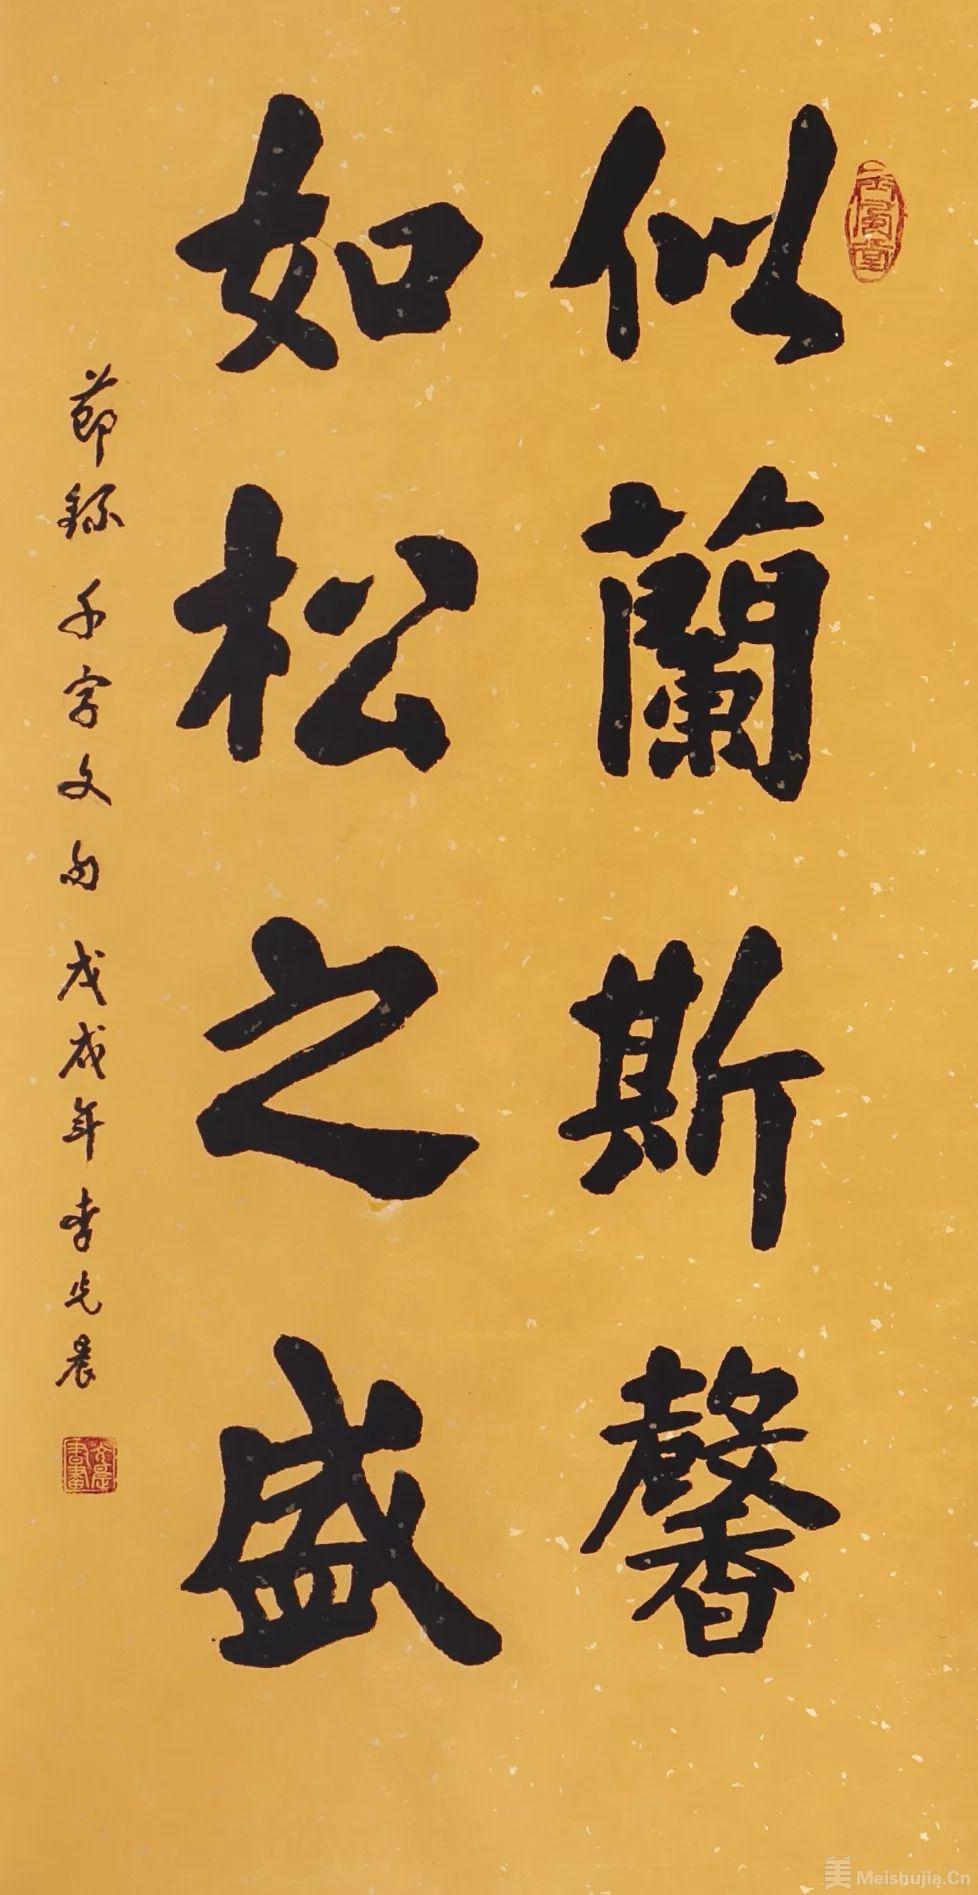 似蘭斯馨
如松之盛
節錄千字文句戊戌年李先晨
美 Meishujia.Cn